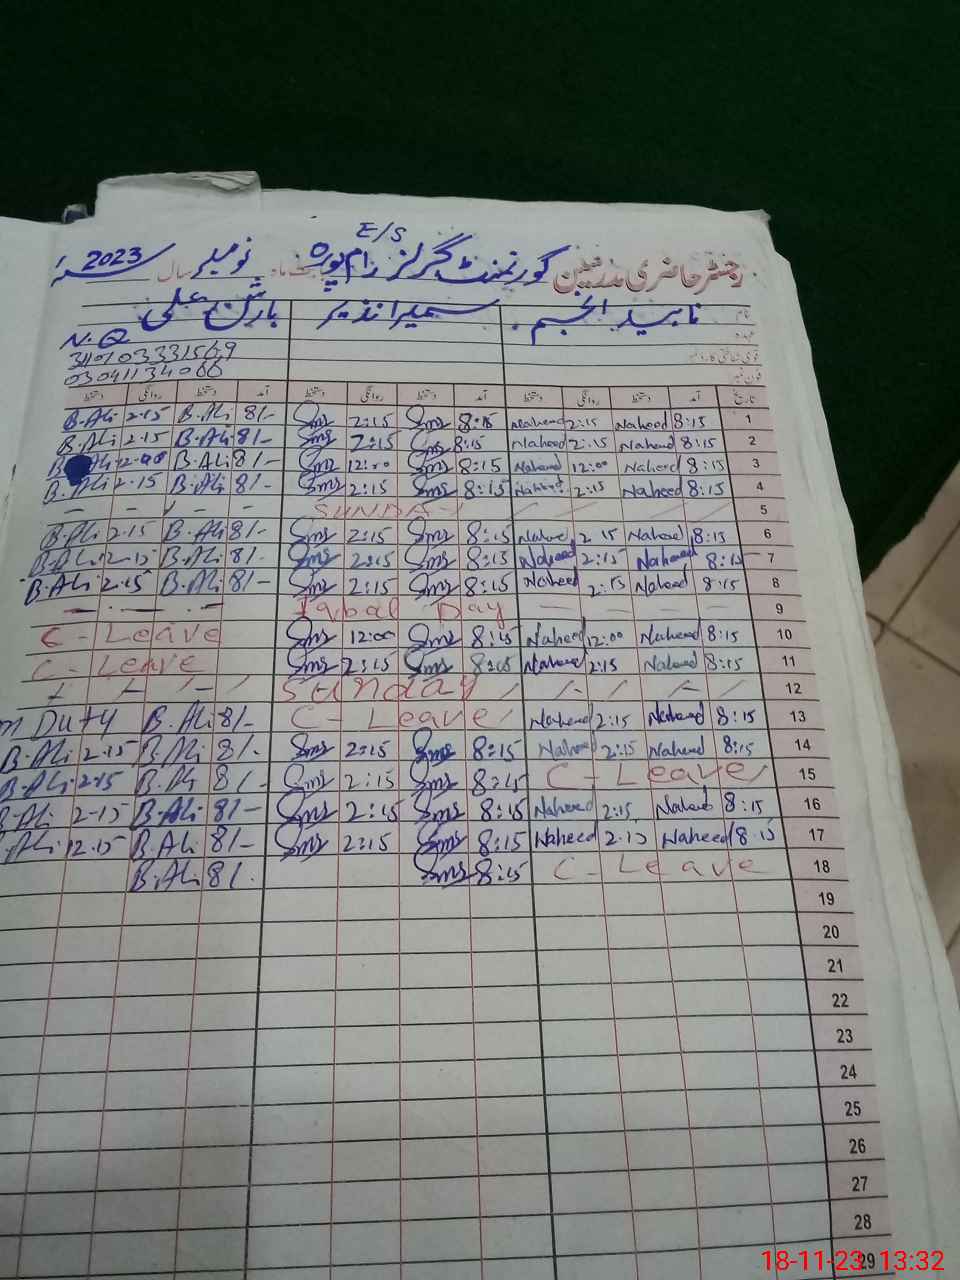 E/S
رجسٹر حاضری مدرسین گورنمنٹ گرلز رام پورہ ماہ نومبر سال 2023
ناہید انجم سمیرا نذیر بارش علی
N.Q
03041134066
B.Ali 2.15 B.Ali 8/- Sms 2:15 Sms 8:15 Naheed 2:15 Naheed 8:15 1
B.Ali 2.15 B.Ali 8/- Sms 2:15 Sms 8:15 Naheed 2:15 Naheed 8:15 2
Ali B.Ali 8/- Sms 12:00 Sms 8:15 Naheed 12:00 Naheed 8:15 3
B.Ali 2.15 B.Ali 8/- Sms 2:15 Sms 8:15 Naheed 2:15 Naheed 8:15 4
SUNDAY 5
B.Ali 2.15 B.Ali 8/- Sms 2:15 Sms 8:15 Naheed 2 15 Naheed 8:15 6
B.Ali 2.15 B.Ali 8/- Sms 2:15 Sms 8:15 Naheed 2:15 Naheed 8:15 7
B.Ali 2.15 B.Ali 8/- Sms 2:15 Sms 8:15 Naheed 2:15 Naheed 8:15 8
Iqbal Day 9
C-Leave Sms 12:00 Sms 8:15 Naheed 12:00 Naheed 8:15 10
C-Leave Sms 2:15 Sms 8:15 Naheed 2:15 Naheed 8:15 11
Sunday 12
m Duty B.Ali 8/- C-Leave Naheed 2:15 Naheed 8:15 13
B.Ali 2.15 B.Ali 8/- Sms 2:15 Sms 8:15 Naheed 2:15 Naheed 8:15 14
B.Ali 2.15 B.Ali 8/- Sms 2:15 Sms 8:15 C-Leave 15
B.Ali 2.15 B.Ali 8/- Sms 2:15 Sms 8:15 Naheed 2:15 Naheed 8:15 16
.Ali 2.15 B.Ali 8/- Sms 2:15 Sms 8:15 Naheed 2:15 Naheed 8:15 17
B.Ali 8/- Sms 8:15 C-Leave 18
19
20
21
22
23
24
25
26
27
28
29
18-11-23 13:32